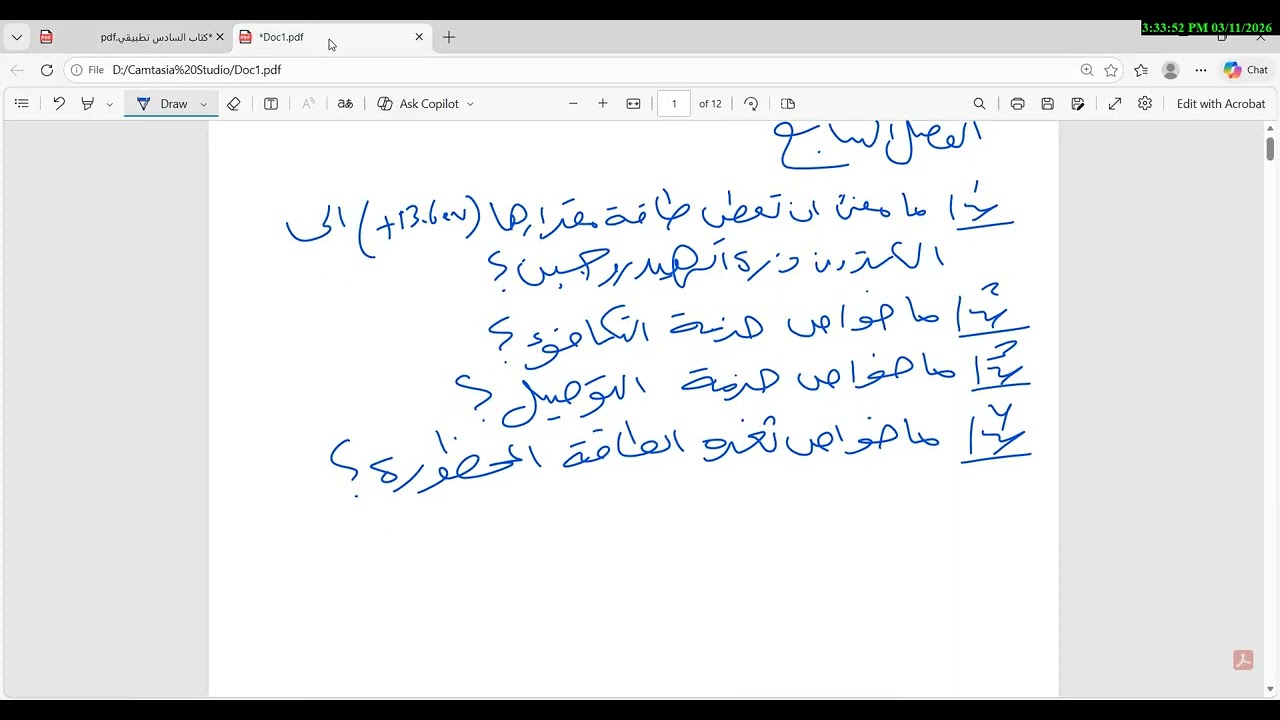 3:33:52 PM 03/11/2026
*كتاب السادس تطبيقي.pdf
*Doc1.pdf
File D:/Camtasia%20Studio/Doc1.pdf
Chat
Draw
Ask Copilot
1 of 12
Edit with Acrobat
الفصل السابع
س1/ ما معنى ان تعطى طاقة مقدارها (+13.6ev) الى
الكترون ذرة الهيدروجين؟
س2/ ما خواص حزمة التكافؤ؟
س3/ ما خواص حزمة التوصيل؟
س4/ ما خواص ثغرة الطاقة المحظورة؟